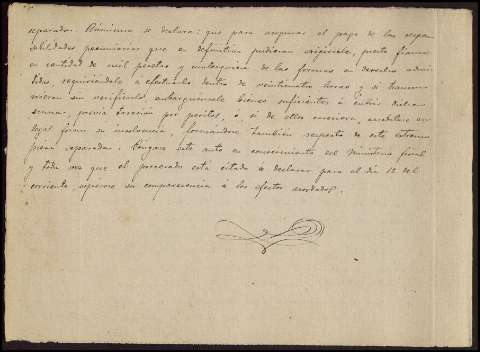 separada. Asimismo se declara: que para asegurar el pago de las respon-
sabilidades pecuniarias que en definitiva pudieran exigírsele, preste fianza
en cantidad de mil pesetas y cualesquiera de las formas en derecho admi-
tidas, requiriéndole á efectuarlo dentro de veinticuatro horas y si transcu-
rrieren sin verificarlo, embárguensele bienes suficientes á cubrir dicha
suma, previa tasación por peritos, ó, si de ellos careciera, acredítese en
legal forma su insolvencia, formándose también respecto de este extremo
pieza separada. Póngase este auto en conocimiento del Ministerio fiscal
y toda vez que el procesado está citado á declarar para el día 12 del
corriente, espérese su comparecencia á los efectos acordados.